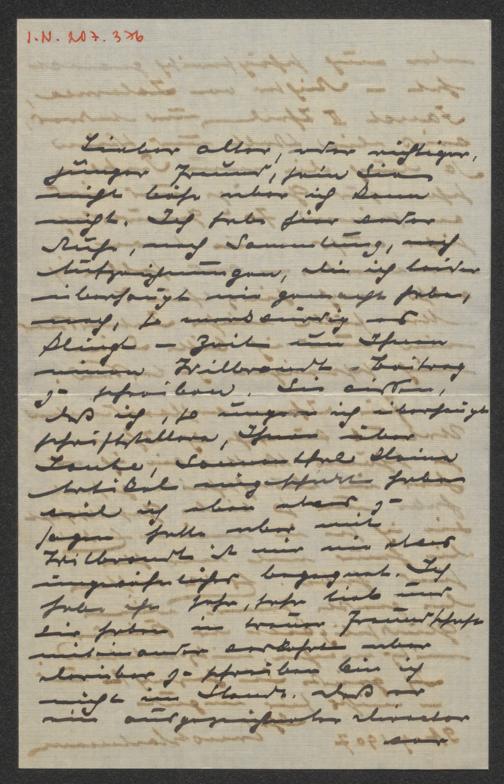 I.N. 207.376
Lieber alter, oder richtiger,
junger Freund, sein Sie
nicht böse aber ich kann
nicht. Ich habe hier weder
Ruhe, noch Sammlung, noch
Aufzeichnungen, die ich leider
überhaupt nie gemacht habe,
noch, so merkwürdig es
klingt – Zeit um Ihnen
einen Wilbrandt-Beitrag
zu schreiben. Sie wissen,
daß ich, so ungern ich überhaupt
schriftstellere, Ihnen über
Laube, Sonnenthal kleine
Artikel eingeschickt habe
weil ich eben etwas zu
sagen hatte aber mit
Wilbrandt ist mir nie etwas
ungewöhnliches begegnet. Ich
habe ihn sehr, sehr lieb und
wir haben in treuer Freundschaft
miteinander verkehrt aber
darüber zu schreiben bin ich
nicht im Stande. Daß er
ein ausgezeichneter Director
war